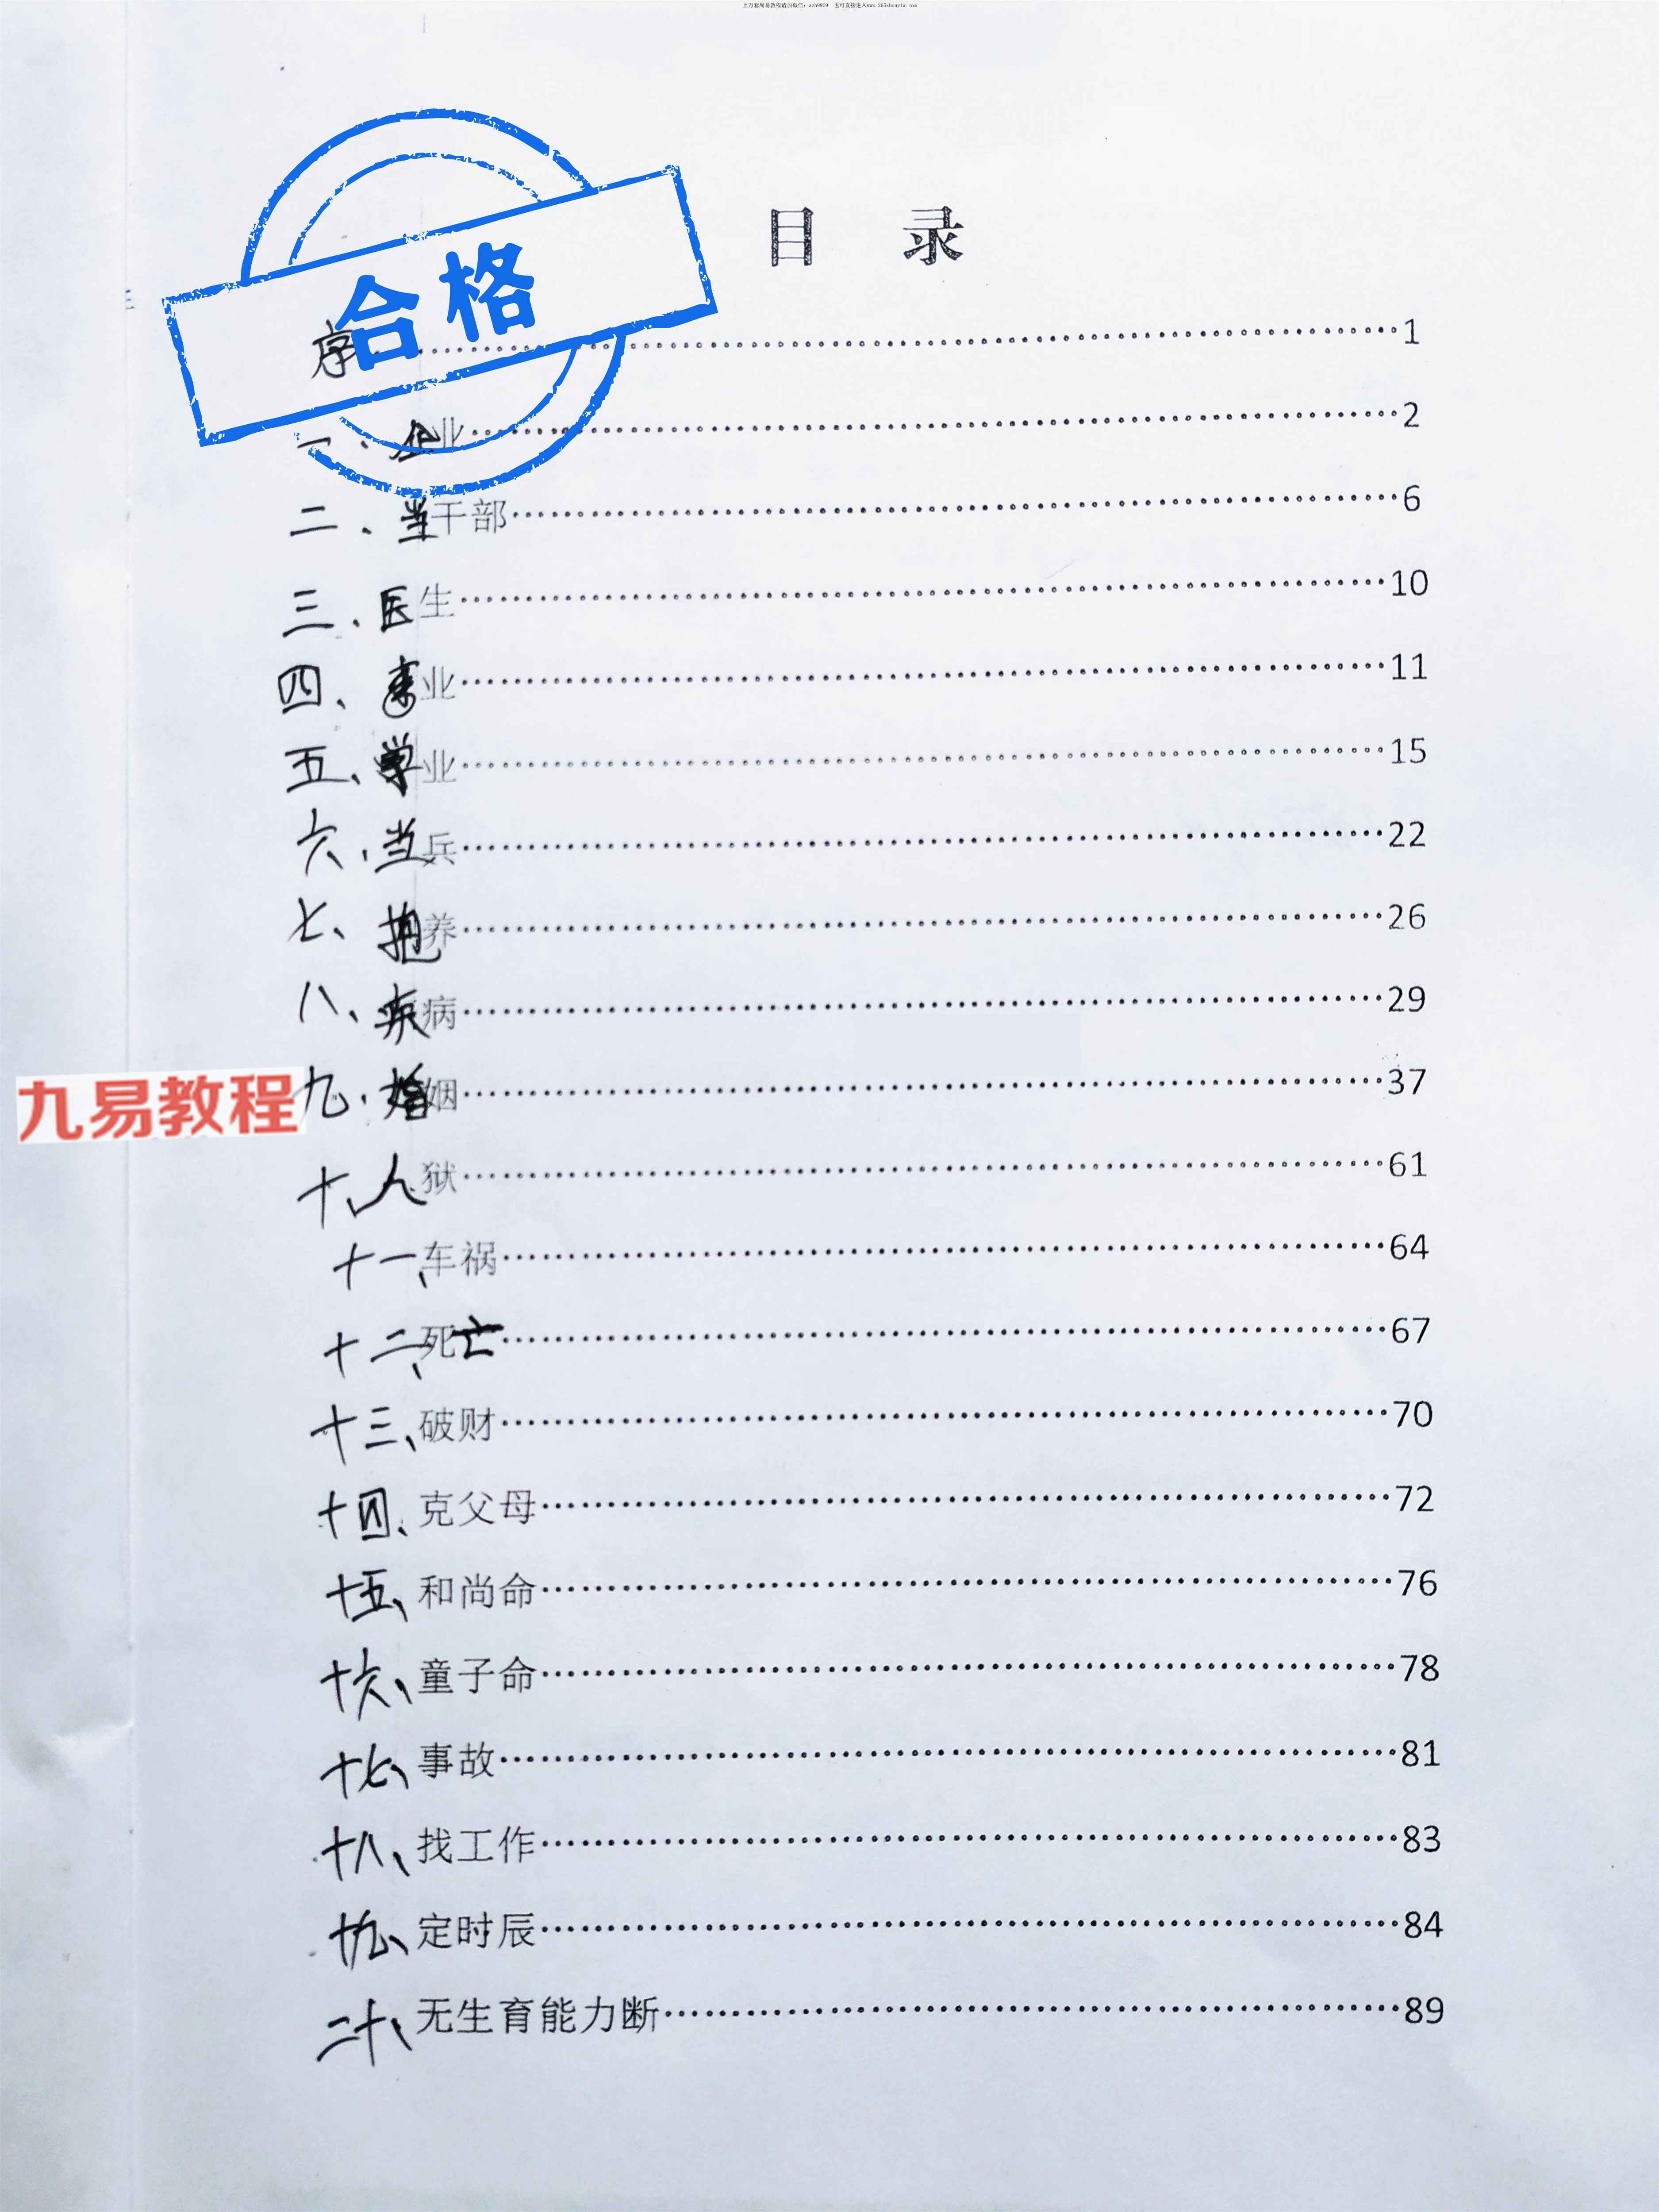 上万套周易教程请加微信：sxh8969 也可直接进入www.265zhouyiw.com
目 录
合格
序……1
一、企业……2
二、当干部……6
三、医生……10
四、事业……11
五、学业……15
六、当兵……22
七、抱养……26
八、疾病……29
九、婚姻……37
九易教程
十、入狱……61
十一、车祸……64
十二、死亡……67
十三、破财……70
十四、克父母……72
十五、和尚命……76
十六、童子命……78
十七、事故……81
十八、找工作……83
十九、定时辰……84
二十、无生育能力断……89